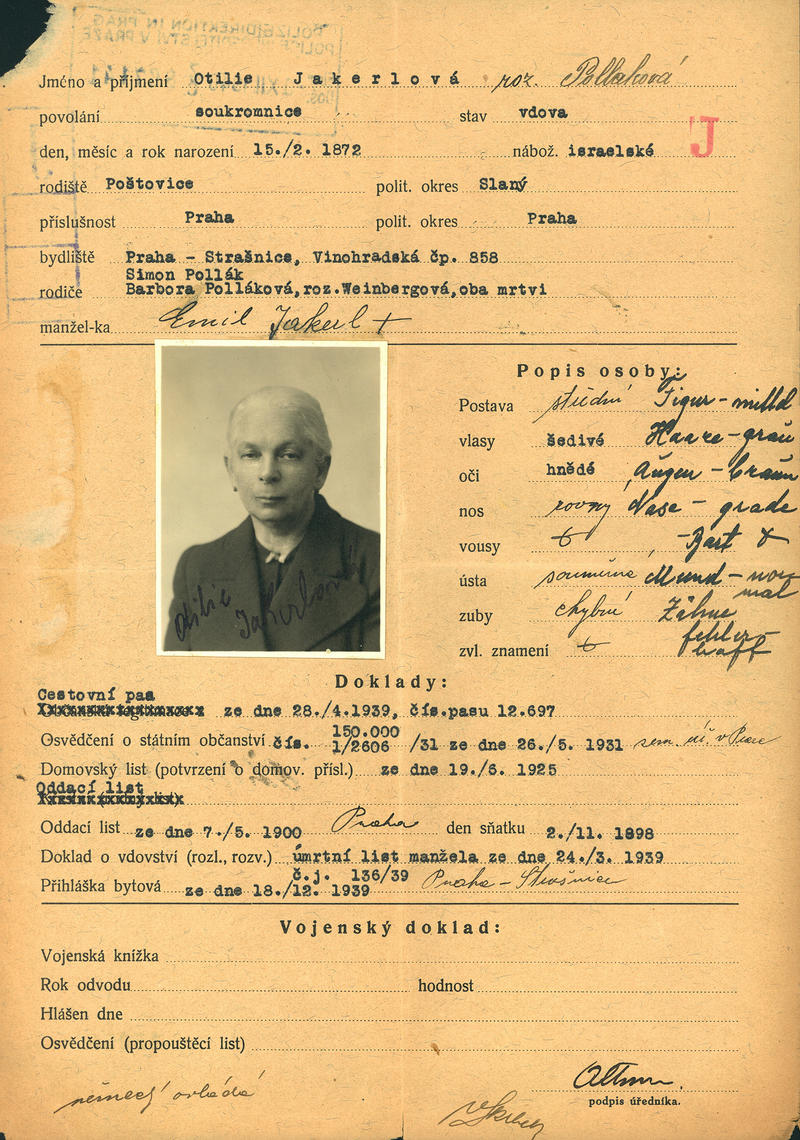 POLIZEIDIREKTION IN PRAG
Jméno a příjmení Otilie Jakerlová roz. Pollaková
povolání soukromnice stav vdova
den, měsíc a rok narození 15./2. 1872 nábož. israelské J
rodiště Poštovice polit. okres Slaný
příslušnost Praha polit. okres Praha
bydliště Praha - Strašnice, Vinohradská čp. 858
Simon Pollák
rodiče Barbora Polláková,roz.Weinbergová,oba mrtvi
manžel-ka Emil Jakerl +
Popis osoby:
Postava střední Figur - mittel
vlasy šedivé Haare - grau
oči hnědé Augen - braun
nos rovný Nase - grade
vousy Bart
ústa souměrné Mund - nor
mal
zuby chybné Zähne
fehler-
haft
zvl. znamení
Otilie Jakerlová
Doklady:
Cestovní pas
ze dne 28./4.1939, čís.pasu 12.697
150.000
Osvědčení o státním občanství čís. 1/2606 /31 ze dne 26./5. 1931 zem. úř. v Praze
Domovský list (potvrzení o domov. přísl.) ze dne 19./6. 1925
Oddací list
Oddací list ze dne 7./5. 1900 Praha den sňatku 2./11. 1898
Doklad o vdovství (rozl., rozv.) úmrtní list manžela ze dne 24./3. 1939
č.j. 136/39
Přihláška bytová ze dne 18./12. 1939 Praha - Strašnice
Vojenský doklad:
Vojenská knížka
Rok odvodu hodnost
Hlášen dne
Osvědčení (propouštěcí list)
německy ovládá
podpis úředníka.